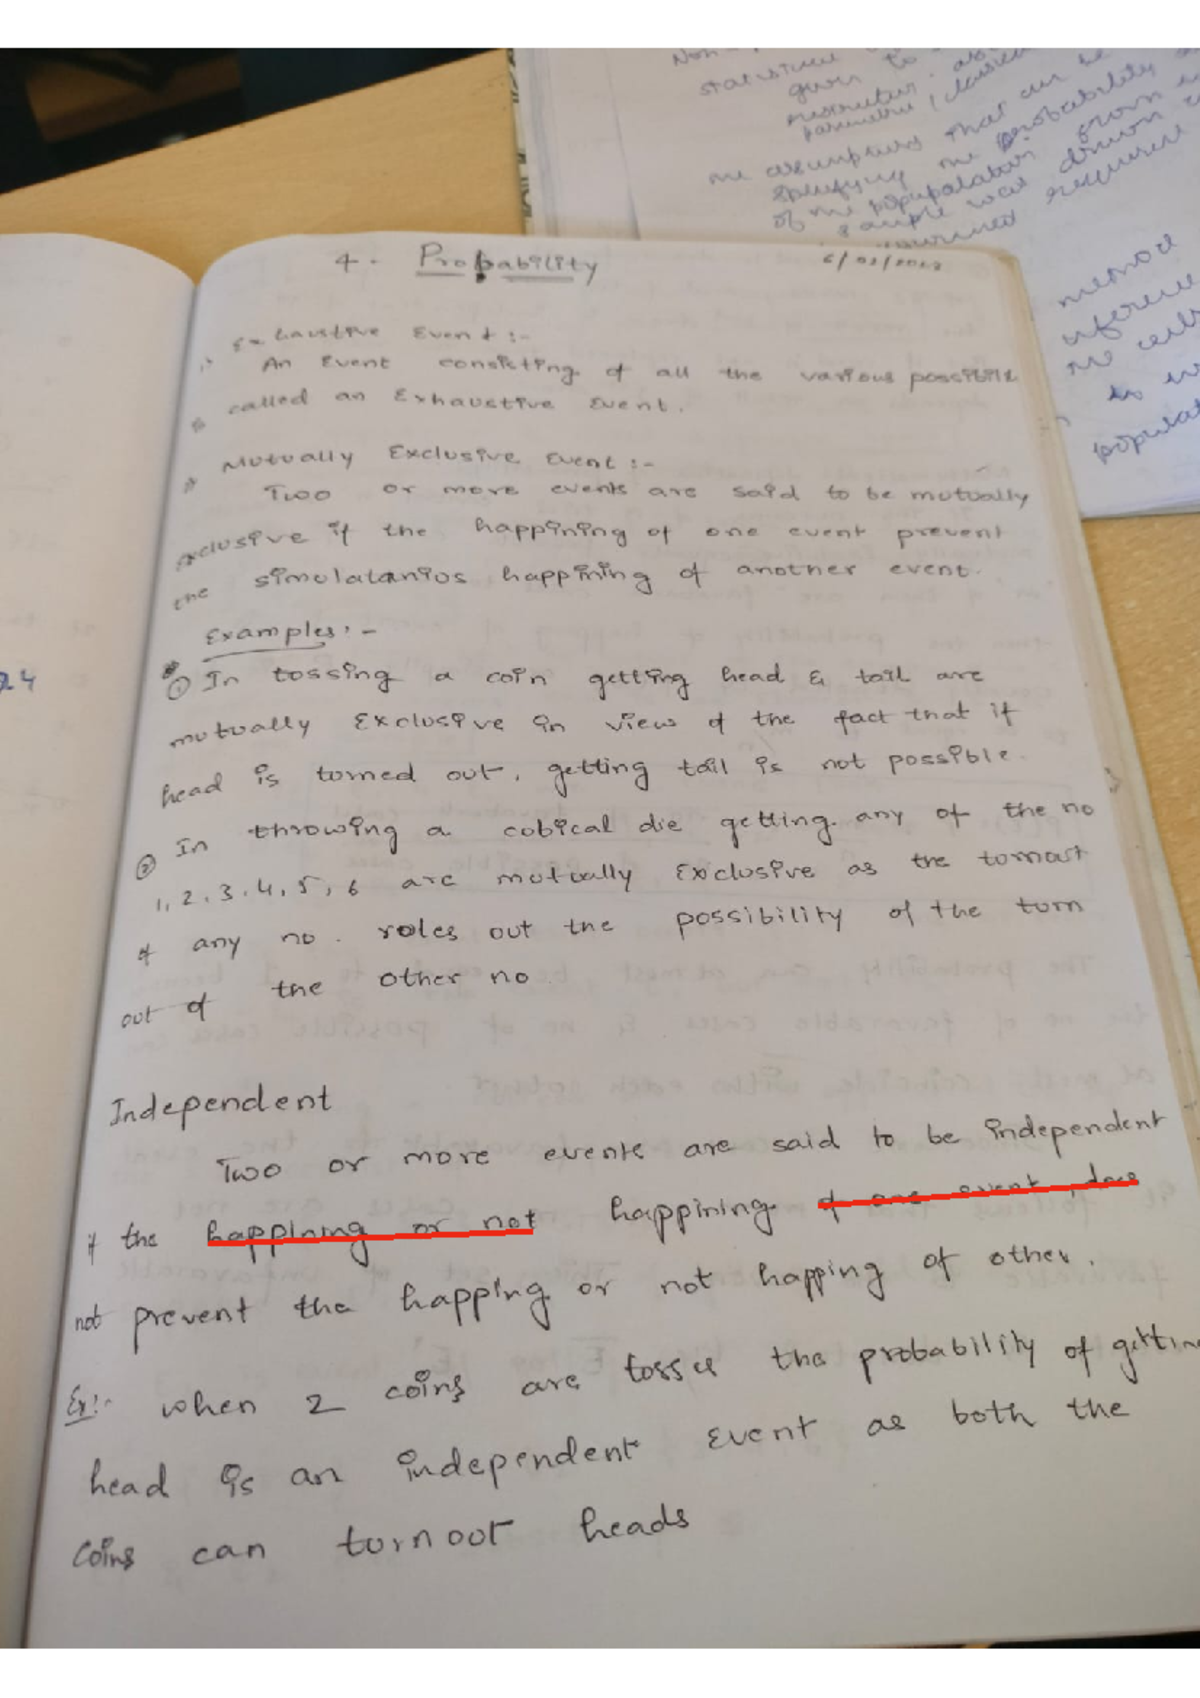 Non-
statistical
given to
me assumptions that can be
specifying the probability
of the population from
sample was drawn
required
method
inference
population
4. Probability
Exhaustive Event :-
An Event consisting of all the various possible
called an Exhaustive Event.
Mutually Exclusive Event :-
Two or more events are said to be mutually
exclusive if the happining of one event prevent
the simulatanios happining of another event.
Examples :-
① In tossing a coin getting head & tail are
mutually Exclusive in view of the fact that if
head is turned out, getting tail is not possible.
② In throwing a cubical die getting any of the no
1, 2, 3, 4, 5, 6 are mutually Exclusive as the turnout
of any no. rules out the possibility of the turn
out of the other no
Independent
Two or more events are said to be independent
if the happining or not happining of one event does
not prevent the happing or not happing of other.
Ex:- when 2 coins are tosses the probability of getting
head is an independent Event as both the
Coins can turnout heads
24